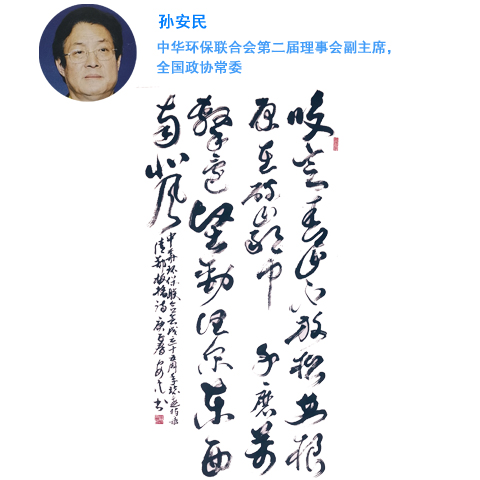 孙安民
中华环保联合会第二届理事会副主席，
全国政协常委
咬定青山不放松立根
原在破岩中千磨萬
擊還堅勁任尔东西
南北風
中华环保联合会成立十五周年
清郑板桥诗